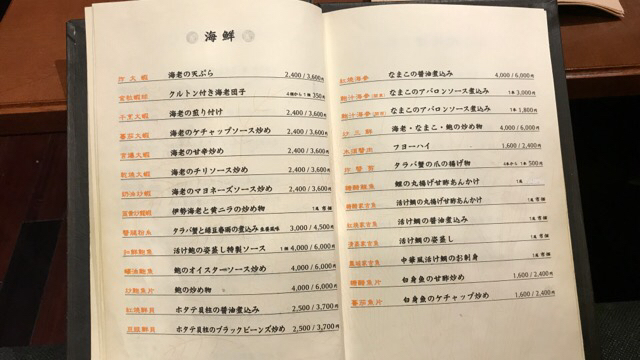 海鮮
海老の天ぷら 2,400/3,600円
クルトン付き海老団子 350円
干烹大蝦 海老の煎り付け 2,400/3,600円
蕃茄大蝦 海老のケチャップソース炒め 2,400/3,600円
海老の甘辛炒め 2,400/3,600円
乾焼大蝦 海老のチリソース炒め 2,400/3,600円
海老のマヨネーズソース炒め 2,400/3,600円
伊勢海老と黄ニラの炒め物 1尾 時価
タラバ蟹と緑豆春雨の煮込み 3,000/4,500円
活け鮑の姿蒸し特製ソース 1個 4,000/6,000円
蠔油鮑魚 鮑のオイスターソース炒め 4,000/6,000円
炒鮑魚片 鮑の炒め物 4,000/6,000円
紅焼鮮貝 ホタテ貝柱の醤油煮込み 2,500/3,700円
豆豉鮮貝 ホタテ貝柱のブラックビーンズ炒め 2,500/3,700円
紅焼海参 なまこの醤油煮込み 4,000/6,000円
鮑汁海参 なまこのアバロンソース煮込み 1本 3,000円
鮑汁海参 なまこのアバロンソース煮込み 1本 1,800円
炒三鮮 海老・なまこ・鮑の炒め物 4,000/6,000円
フヨーハイ 1,600/2,400円
炸蟹鉗 タラバ蟹の爪の揚げ物 500円
糖醋鯉魚 鯉の丸揚げ甘酢あんかけ 1尾
活け鯛の丸揚げ甘酢あんかけ 1尾 時価
活け鯛の醤油煮込み 1尾 時価
活け鯛の姿蒸し 1尾 時価
中華風活け鯛のお刺身 1尾 時価
糖醋魚片 白身魚の甘酢炒め 1,600/2,400円
蕃茄魚片 白身魚のケチャップ炒め 1,600/2,400円